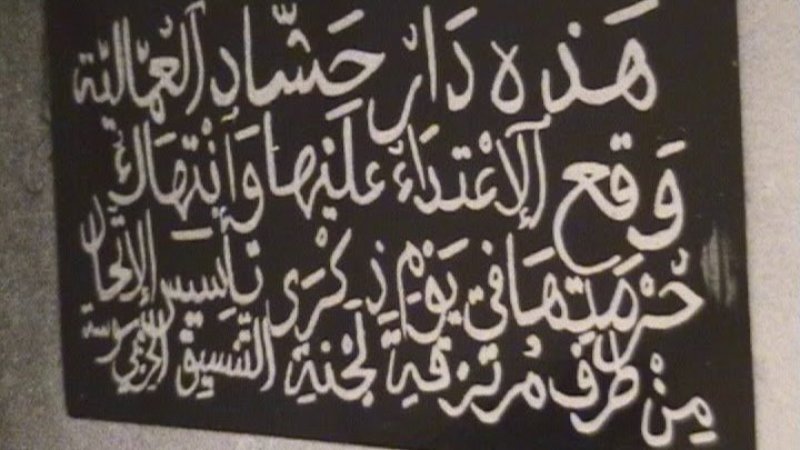 هَذِه دَارُ حَشَّاد العُمَّاليَّة
وَقع الاِعْتدَاءُ عليْها وَانْتِهَاكُ
حُرْمَتِهَا في يَوْمِ ذِكْرَى تأسِيسِ الإتحاد
مِنْ طرف مُرتزقةِ لجْنةِ التَّنسِيق الحزبي بسوسة